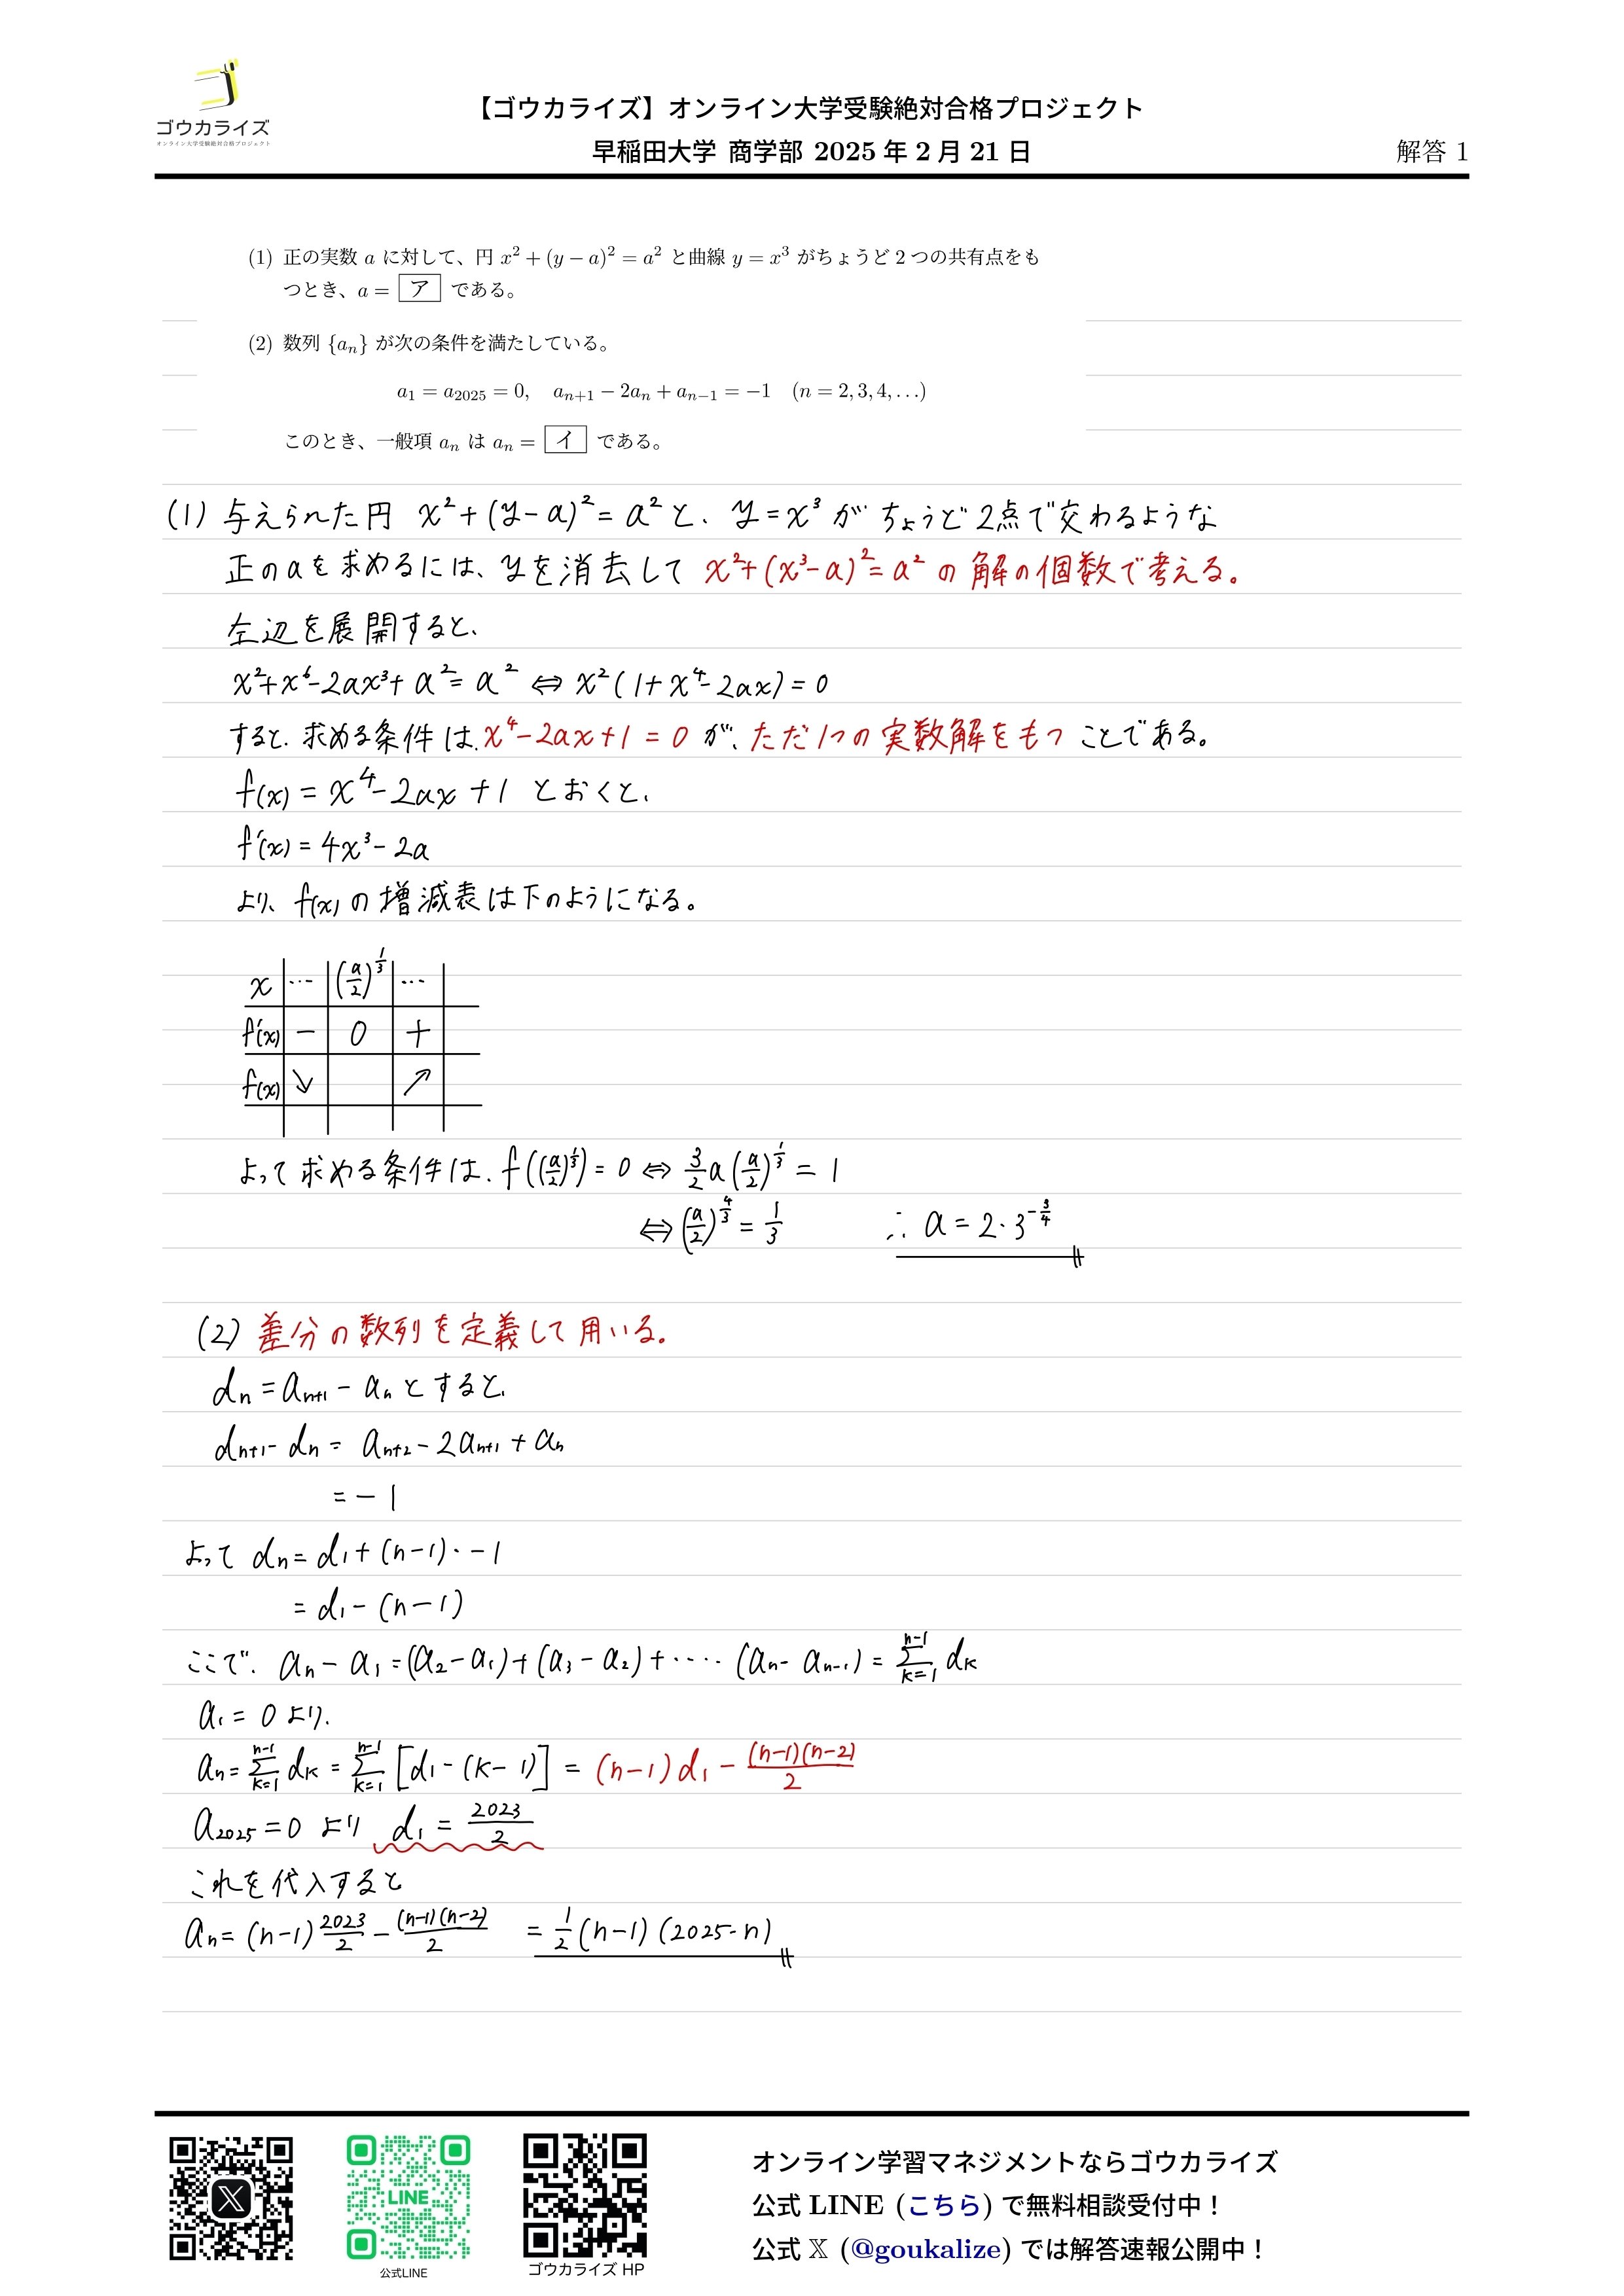 ゴウカライズ
オンライン大学受験絶対合格プロジェクト
【ゴウカライズ】オンライン大学受験絶対合格プロジェクト
早稲田大学 商学部 2025 年 2 月 21 日
解答 1
(1) 正の実数 a に対して、円 x² + (y − a)² = a² と曲線 y = x³ がちょうど 2 つの共有点をも
つとき、a = ア である。
(2) 数列 {aₙ} が次の条件を満たしている。
a₁ = a₂₀₂₅ = 0, aₙ₊₁ − 2aₙ + aₙ₋₁ = −1 (n = 2, 3, 4, . . .)
このとき、一般項 aₙ は aₙ = イ である。
(1) 与えられた円 x²+(y-a)²=a²と、y=x³が ちょうど2点で交わるような
正のaを求めるには、yを消去して x²+(x³-a)²=a² の解の個数で考える。
左辺を展開すると、
x²+x⁶-2ax³+a²=a² ⇔ x²(1+x⁴-2ax)=0
すると、求める条件は、x⁴-2ax+1=0 が、ただ1つの実数解をもつ ことである。
f(x)=x⁴-2ax+1 とおくと、
f'(x)=4x³-2a
より、f(x)の増減表は下のようになる。
x … (a/2)^(1/3) …
f'(x) − 0 +
f(x) ↘ ↗
よって求める条件は、f((a/2)^(1/3))=0 ⇔ 3/2 a(a/2)^(1/3) = 1
⇔ (a/2)^(4/3) = 1/3 ∴ a=2·3^(-3/4)
(2) 差分の数列を定義して用いる。
dₙ=aₙ₊₁-aₙとすると、
dₙ₊₁-dₙ= aₙ₊₂-2aₙ₊₁+aₙ
=-1
よって dₙ=d₁+(n-1)·-1
=d₁-(n-1)
ここで、aₙ-a₁=(a₂-a₁)+(a₃-a₂)+‥‥(aₙ-aₙ₋₁)=Σ_{k=1}^{n-1} dₖ
a₁=0より、
aₙ=Σ_{k=1}^{n-1} dₖ=Σ_{k=1}^{n-1}[d₁-(k-1)] = (n-1)d₁-(n-1)(n-2)/2
a₂₀₂₅=0 より d₁=2023/2
これを代入すると
aₙ=(n-1)2023/2-(n-1)(n-2)/2 =1/2(n-1)(2025-n)
LINE
公式LINE
ゴウカライズ HP
オンライン学習マネジメントならゴウカライズ
公式 LINE (こちら) で無料相談受付中！
公式 𝕏 (@goukalize) では解答速報公開中！